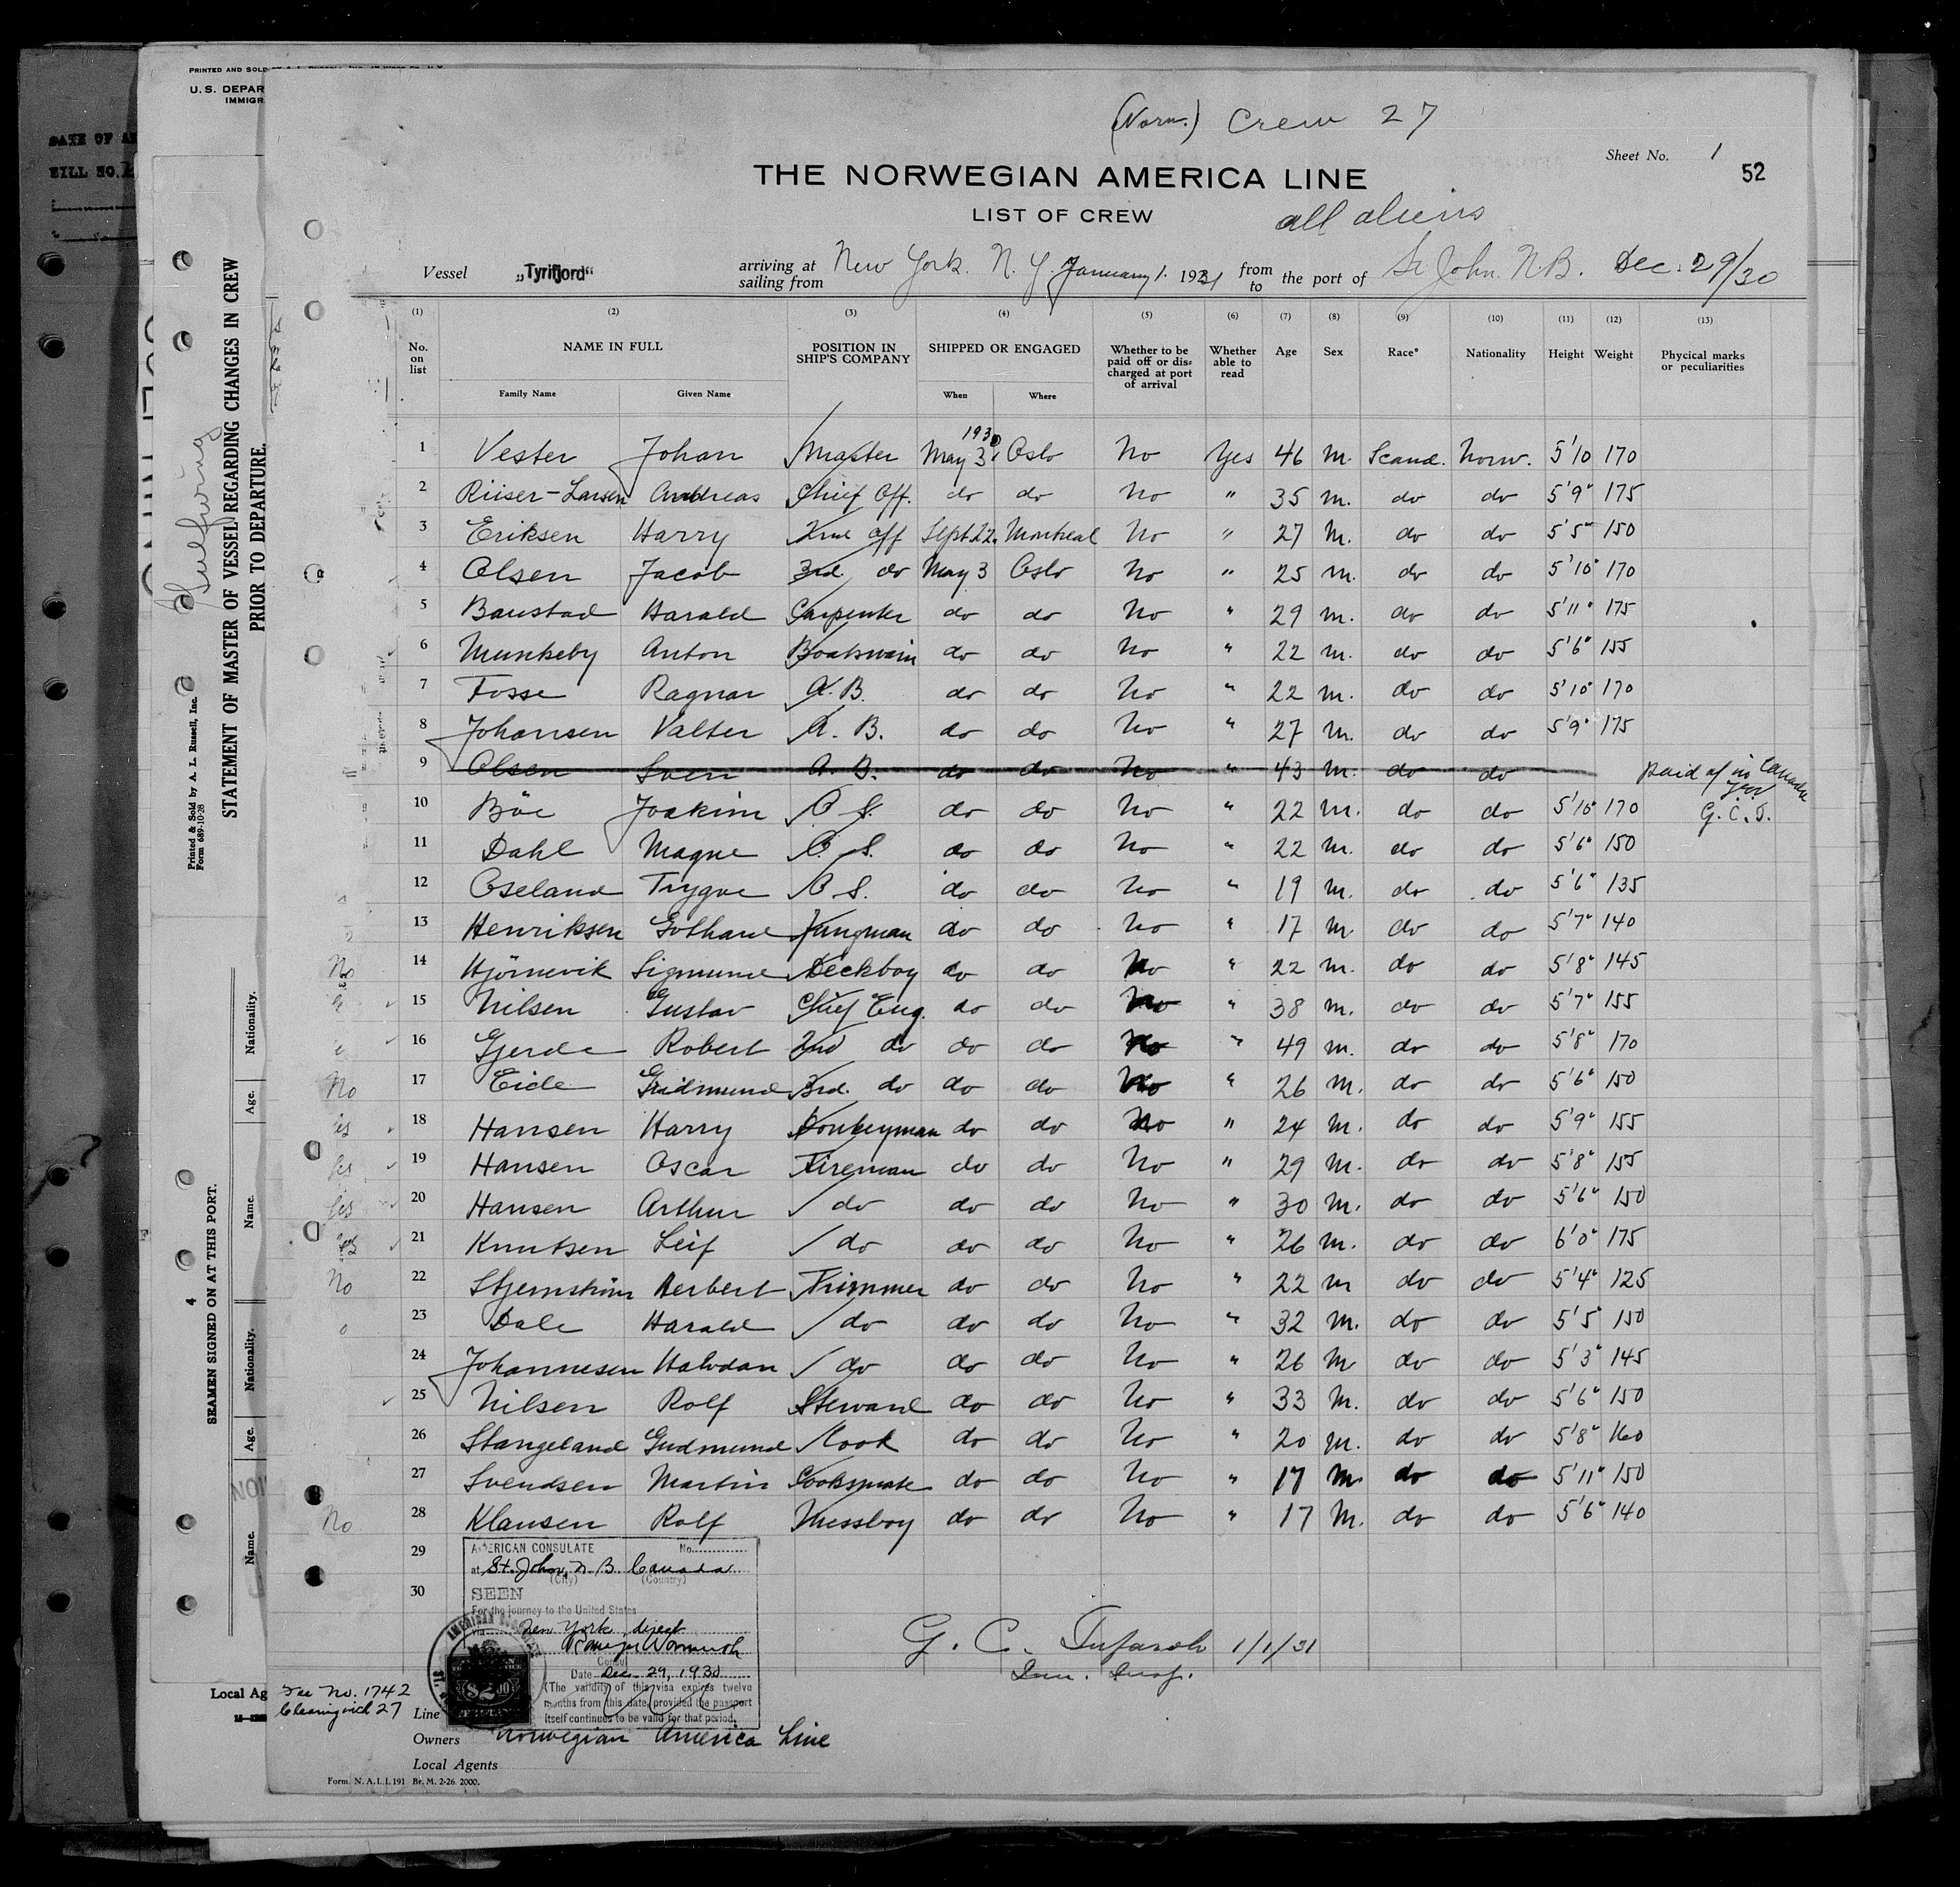 (Norw.) Crew 27
Sheet No. 1
52
THE NORWEGIAN AMERICA LINE
LIST OF CREW
all aliens
Vessel „Tyrifjord“ arriving at sailing from New York. N. Y. January 1. 1931 from to the port of St John. N.B. Dec. 29/30
(1) (2) (3) (4) (5) (6) (7) (8) (9) (10) (11) (12) (13)
No. on list NAME IN FULL POSITION IN SHIP'S COMPANY SHIPPED OR ENGAGED Whether to be paid off or discharged at port of arrival Whether able to read Age Sex Race* Nationality Height Weight Phycical marks or peculiarities
Family Name Given Name When Where
1930
1 Vester Johan Master May 3 Oslo No Yes 46 m. Scand. Norw. 5'10 170
2 Riiser-Larsen Andreas Chief Off. do do No " 35 m. do do 5'9" 175
3 Eriksen Harry 2nd Off Sept 22. Montreal No " 27 M. do do 5'5" 150
4 Olsen Jacob 3rd do May 3 Oslo No " 25 m. do do 5'10" 170
5 Banstad Harald Carpenter do do No " 29 m. do do 5'11" 175
6 Munkeby Anton Boatswain do do No " 22 m. do do 5'6" 155
7 Fosse Ragnar A.B. do do No " 22 m. do do 5'10" 170
8 Johansen Valter A. B. do do No " 27 m. do do 5'9" 175
9 Olsen Sven A. B. do do No " 43 m. do do paid of in Canada
10 Böe Joakim O S. do do No " 22 m. do do 5'10" 170 G. C. T.
11 Dahl Magne O. S. do do No " 22 m. do do 5'6" 150
12 Oseland Trygve O S. do do No " 19 m. do do 5'6" 135
13 Henriksen Gothard Jungman do do No " 17 m. do do 5'7" 140
14 Hjörnevik Sigmund Deckboy do do No " 22 m. do do 5'8" 145
15 Nilsen Gustav Chief Eng. do do No " 38 m. do do 5'7" 155
16 Gjerde Robert 2nd do do do No " 49 m. do do 5'8" 170
17 Eide Gudmund 3rd. do do do No " 26 m. do do 5'6" 150
18 Hansen Harry Donkeyman do do No " 24 m. do do 5'9" 155
19 Hansen Oscar Fireman do do No " 29 m. do do 5'8" 155
20 Hansen Arthur do do do No " 30 m. do do 5'6" 150
21 Knutsen Leif do do do No " 26 m. do do 6'0" 175
22 Stjernström Herbert Trimmer do do No " 22 m do do 5'4" 125
23 Dale Harald do do do No " 32 m. do do 5'5" 150
24 Johannesen Halvdan do do do No " 26 m do do 5'3" 145
25 Nilsen Rolf Steward do do No " 33 m. do do 5'6" 150
26 Stangeland Gudmund Cook do do No " 20 m. do do 5'8" 160
27 Svendsen Martin Cooksmate do do No " 17 m do do 5'11" 150
28 Klausen Rolf Messboy do do No " 17 m. do do 5'6" 140
29
30
AMERICAN CONSULATE No.
at St. John, N. B. Canada
(City) (Country)
SEEN
For the journey to the United States
via New York direct
Consul
Date Dec. 29, 1930
(The validity of this visa expires twelve
months from this date provided the passport
itself continues to be valid for that period.
G. C. 1/1/31
Imm. Insp.
Fee No. 1742
27
Line
Owners Norwegian America Line
Local Agents
Form. N. A. L. I. 191 Br. M. 2-26. 2000.
U. S. DEPAR
IMMIGR
STATEMENT OF MASTER OF VESSEL REGARDING CHANGES IN CREW
PRIOR TO DEPARTURE.
Printed & Sold by A. L. Russell, Inc.
Form 689-10-28
SEAMEN SIGNED ON AT THIS PORT.
Nationality.
Age.
Name.
Nationality.
Age.
Name.
4
Local Ag